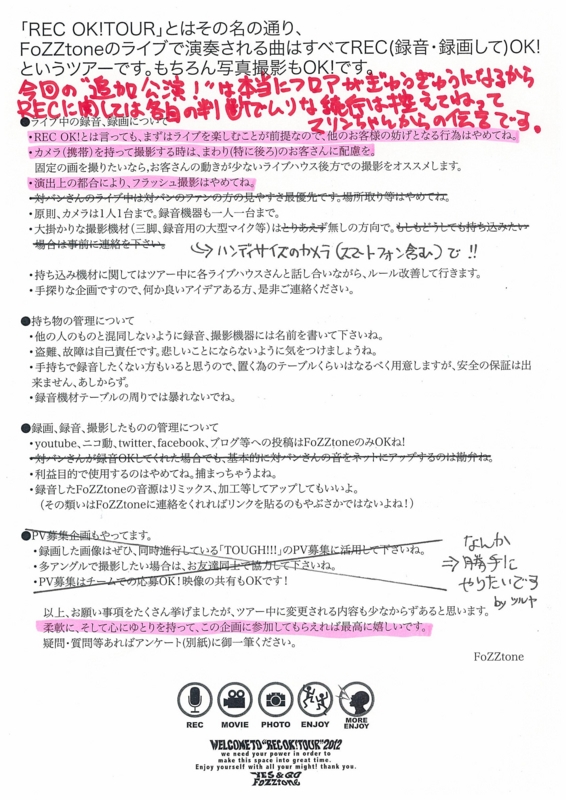 「REC OK!TOUR」とはその名の通り、
FoZZtoneのライブで演奏される曲はすべてREC(録音・録画して)OK!
というツアーです。もちろん写真撮影もOK!です。
今回の“追加公演!”は本当にフロアがぎゅうぎゅうになるから
RECに関しては各自の判断でムリな続行は控えてねって
マリンちゃんからの伝言です。
●ライブ中の録音、録画について
・REC OK!とは言っても、まずはライブを楽しむことが前提なので、他のお客様の妨げとなる行為はやめてね。
・カメラ(携帯)を持って撮影する時は、まわり(特に後ろ)のお客さんに配慮を。
固定の画を撮りたいなら、お客さんの動きが少ないライブハウス後方での撮影をオススメします。
・演出上の都合により、フラッシュ撮影はやめてね。
・対バンさんのライブ中は対バンのファンの方の見やすさ最優先です。場所取り等はやめてね。
・原則、カメラは1人1台まで。録音機器も一人一台まで。
・大掛かりな撮影機材(三脚、録音用の大型マイク等)はとりあえず無しの方向で。もしもどうしても持ち込みたい
場合は事前に連絡を下さい。
→ハンディサイズのカメラ(スマートフォン含む)で!!
・持ち込み機材に関してはツアー中に各ライブハウスさんと話し合いながら、ルール改善して行きます。
・手探りな企画ですので、何か良いアイデアある方、是非ご連絡ください。
●持ち物の管理について
・他の人のものと混同しないように録音、撮影機器には名前を書いて下さいね。
・盗難、故障は自己責任です。悲しいことにならないように気をつけましょうね。
・手持ちで録音したくない方もいると思うので、置く為のテーブルくらいはなるべく用意しますが、安全の保証は出
来ません、あしからず。
・録音機材テーブルの周りでは暴れないでね。
●録画、録音、撮影したものの管理について
・youtube、ニコ動、twitter、facebook、ブログ等への投稿はFoZZtoneのみOKね!
・対バンさんが録音OKしてくれた場合でも、基本的に対バンさんの音をネットにアップするのは勘弁ね。
・利益目的で使用するのはやめてね。捕まっちゃうよね。
・録音したFoZZtoneの音源はリミックス、加工等してアップしてもいいよ。
(その類いはFoZZtoneに連絡をくれればリンクを貼るのもやぶさかではないよね!)
●PV募集企画もやってます。
・録画した画像はぜひ、同時進行している「TOUGH!!!」のPV募集に活用して下さいね。
・多アングルで撮影したい場合は、お友達同士で協力して下さいね。
・PV募集はチームでの応募OK!映像の共有もOKです!
なんか
⇒勝手に
やりたいです
by ツルヤ
以上、お願い事項をたくさん挙げましたが、ツアー中に変更される内容も少なからずあると思います。
柔軟に、そして心にゆとりを持って、この企画に参加してもらえれば最高に嬉しいです。
疑問・質問等あればアンケート(別紙)に御一筆ください。
FoZZtone
REC MOVIE PHOTO ENJOY MORE ENJOY
WELCOME TO "REC OK! TOUR" 2012
we need your power in order to
make this space into great time.
Enjoy yourself with all your might! thank you.
YES & GO
FOZZTONE